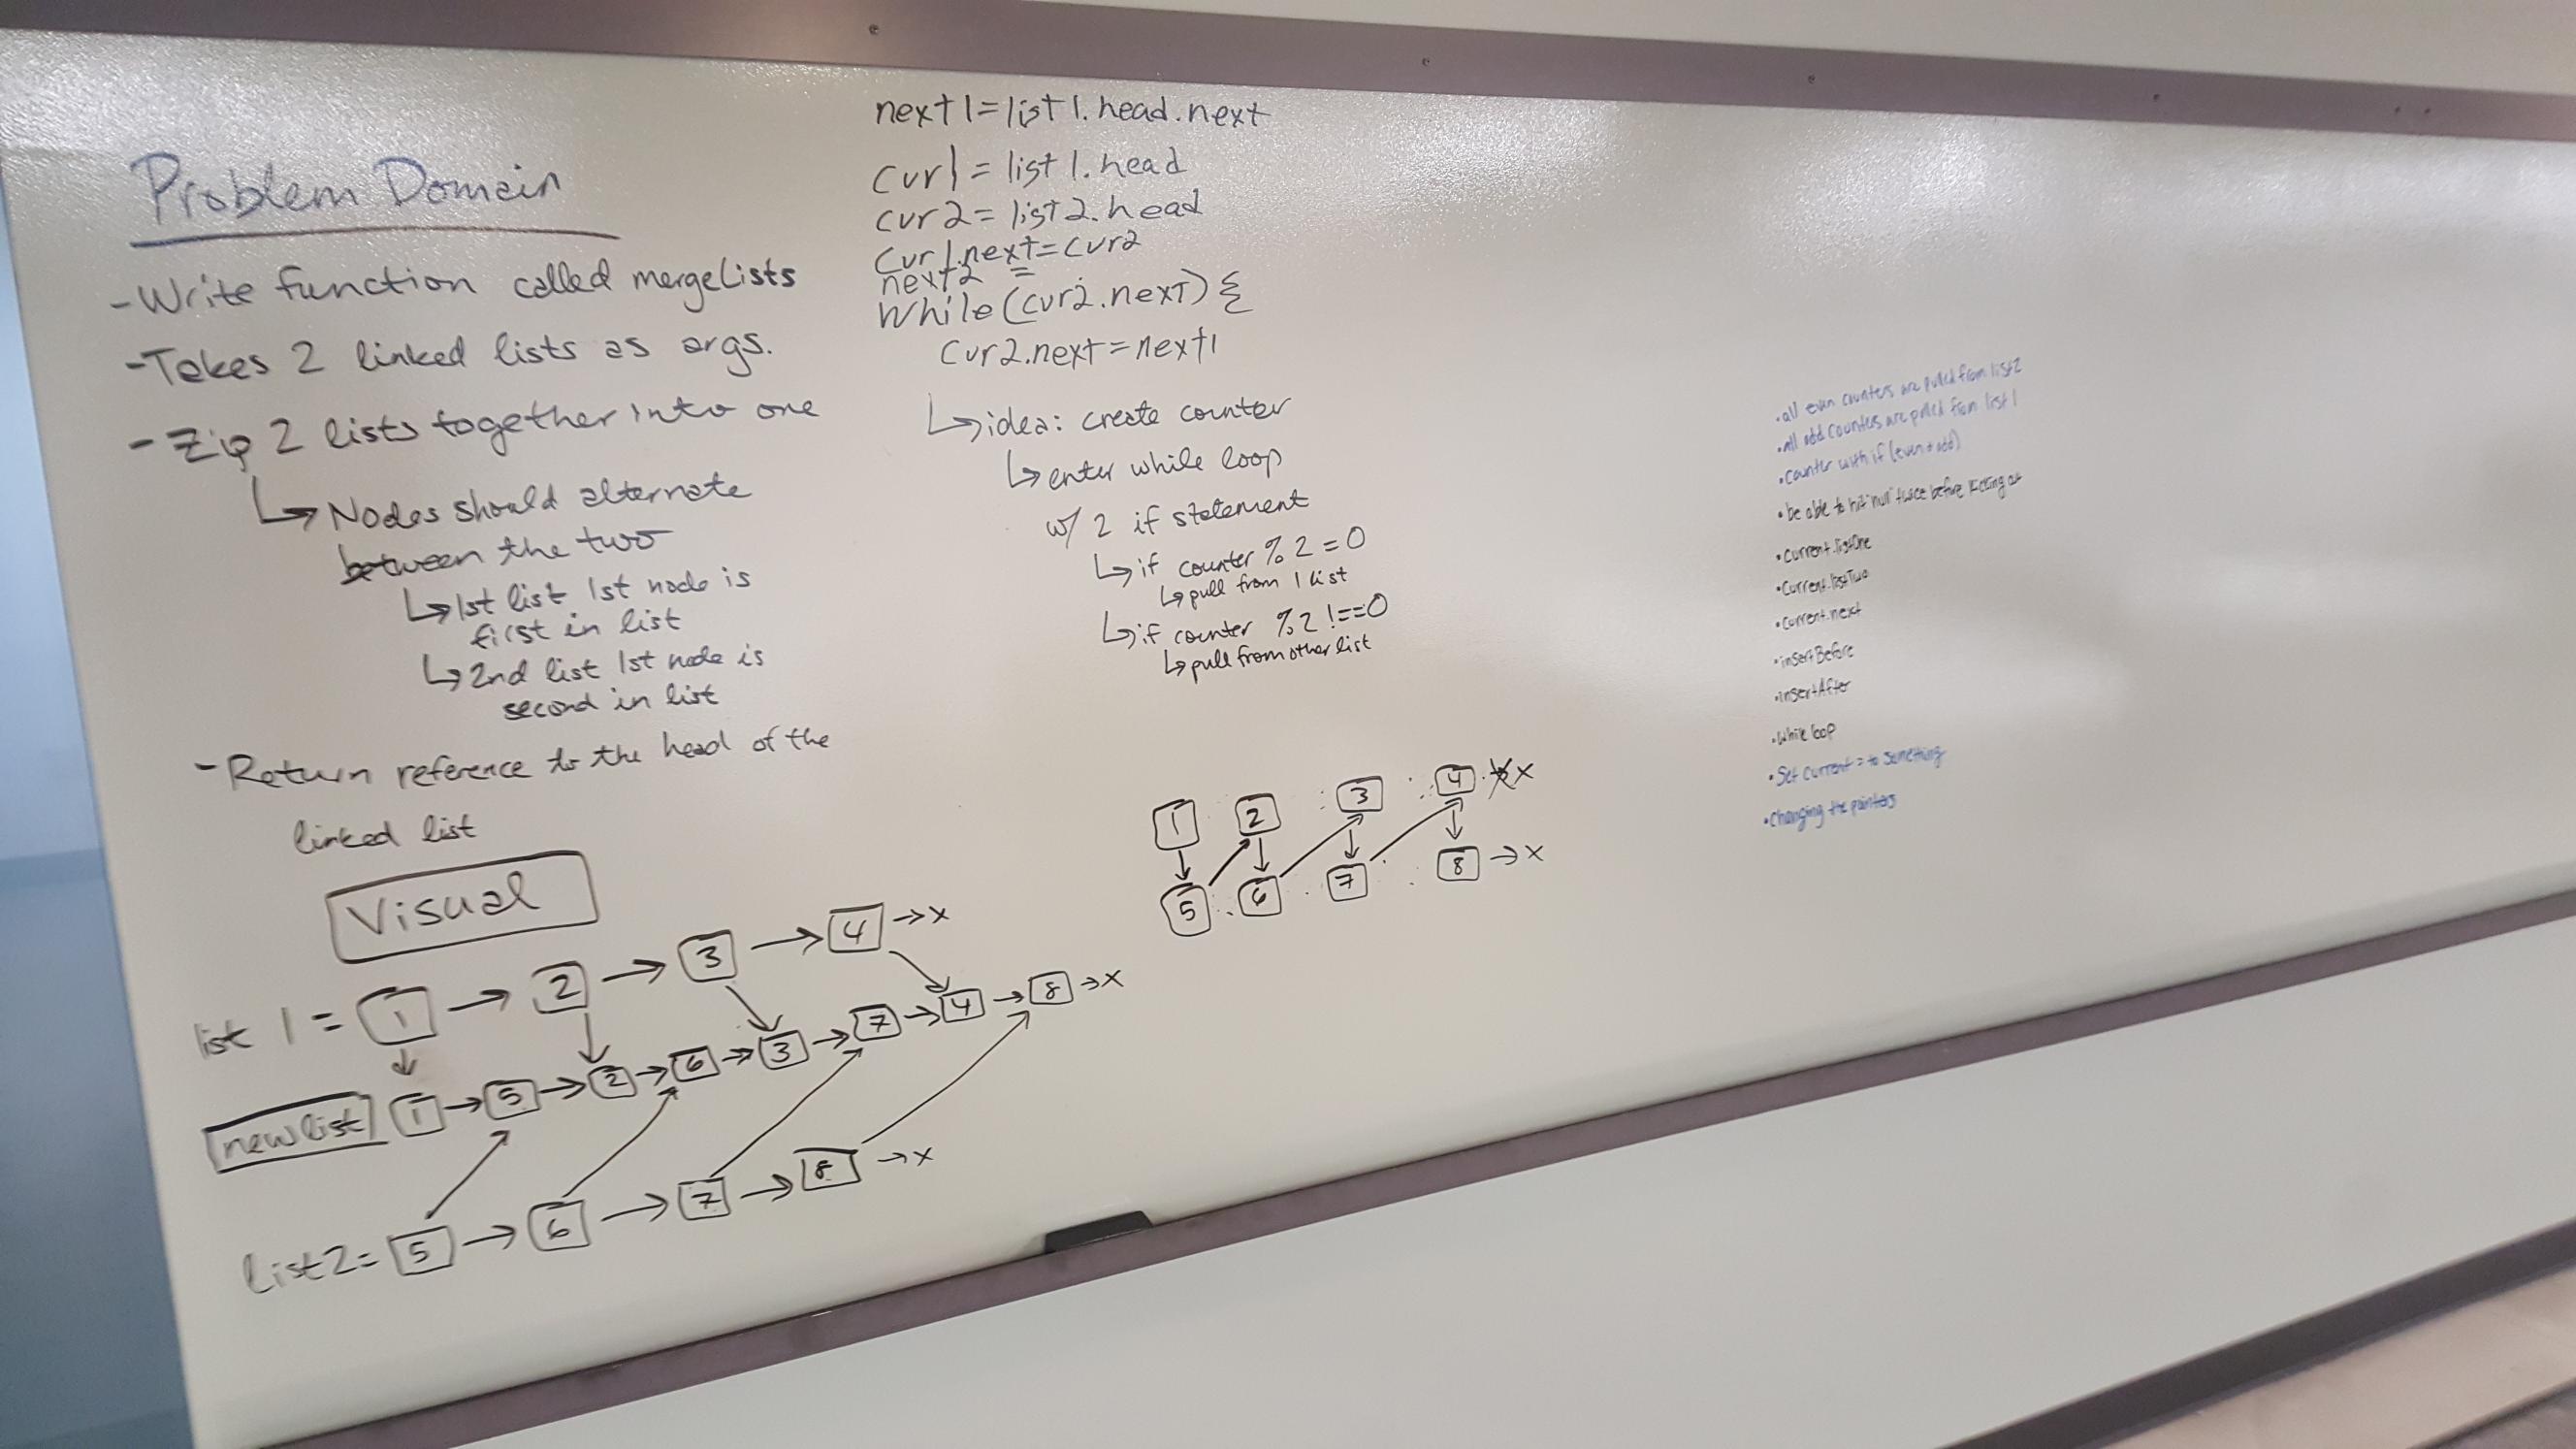 Problem Domain
-Write function called mergeLists
-Takes 2 linked lists as args.
-Zip 2 lists together into one
↳Nodes should alternate
between the two
↳1st list 1st node is
first in list
↳2nd list 1st node is
second in list
-Return reference to the head of the
linked list
Visual
list 1 = 1 → 2 → 3 → 4 → x
newlist 1 → 5 → 2 → 6 → 3 → 7 → 4 → 8 → x
list2= 5 → 6 → 7 → 8 → x
next1=list1.head.next
cur1 = list1.head
cur2= list2.head
cur1.next=cur2
next2 =
while(cur2.next){
cur2.next=next1
↳idea: create counter
↳enter while loop
w/ 2 if statement
↳if counter % 2 = 0
↳pull from 1 list
↳if counter %2 !==0
↳pull from other list
1 2 3 4 x
5 6 7 8 → x
•all even counters are pulled from list2
•all odd counters are pulled from list 1
•counter with if (even + odd)
•be able to hit "null" twice before kicking out
•current.listOne
•current.listTwo
•current.next
•insertBefore
•insertAfter
•while loop
•Set current = to something
•changing the pointers